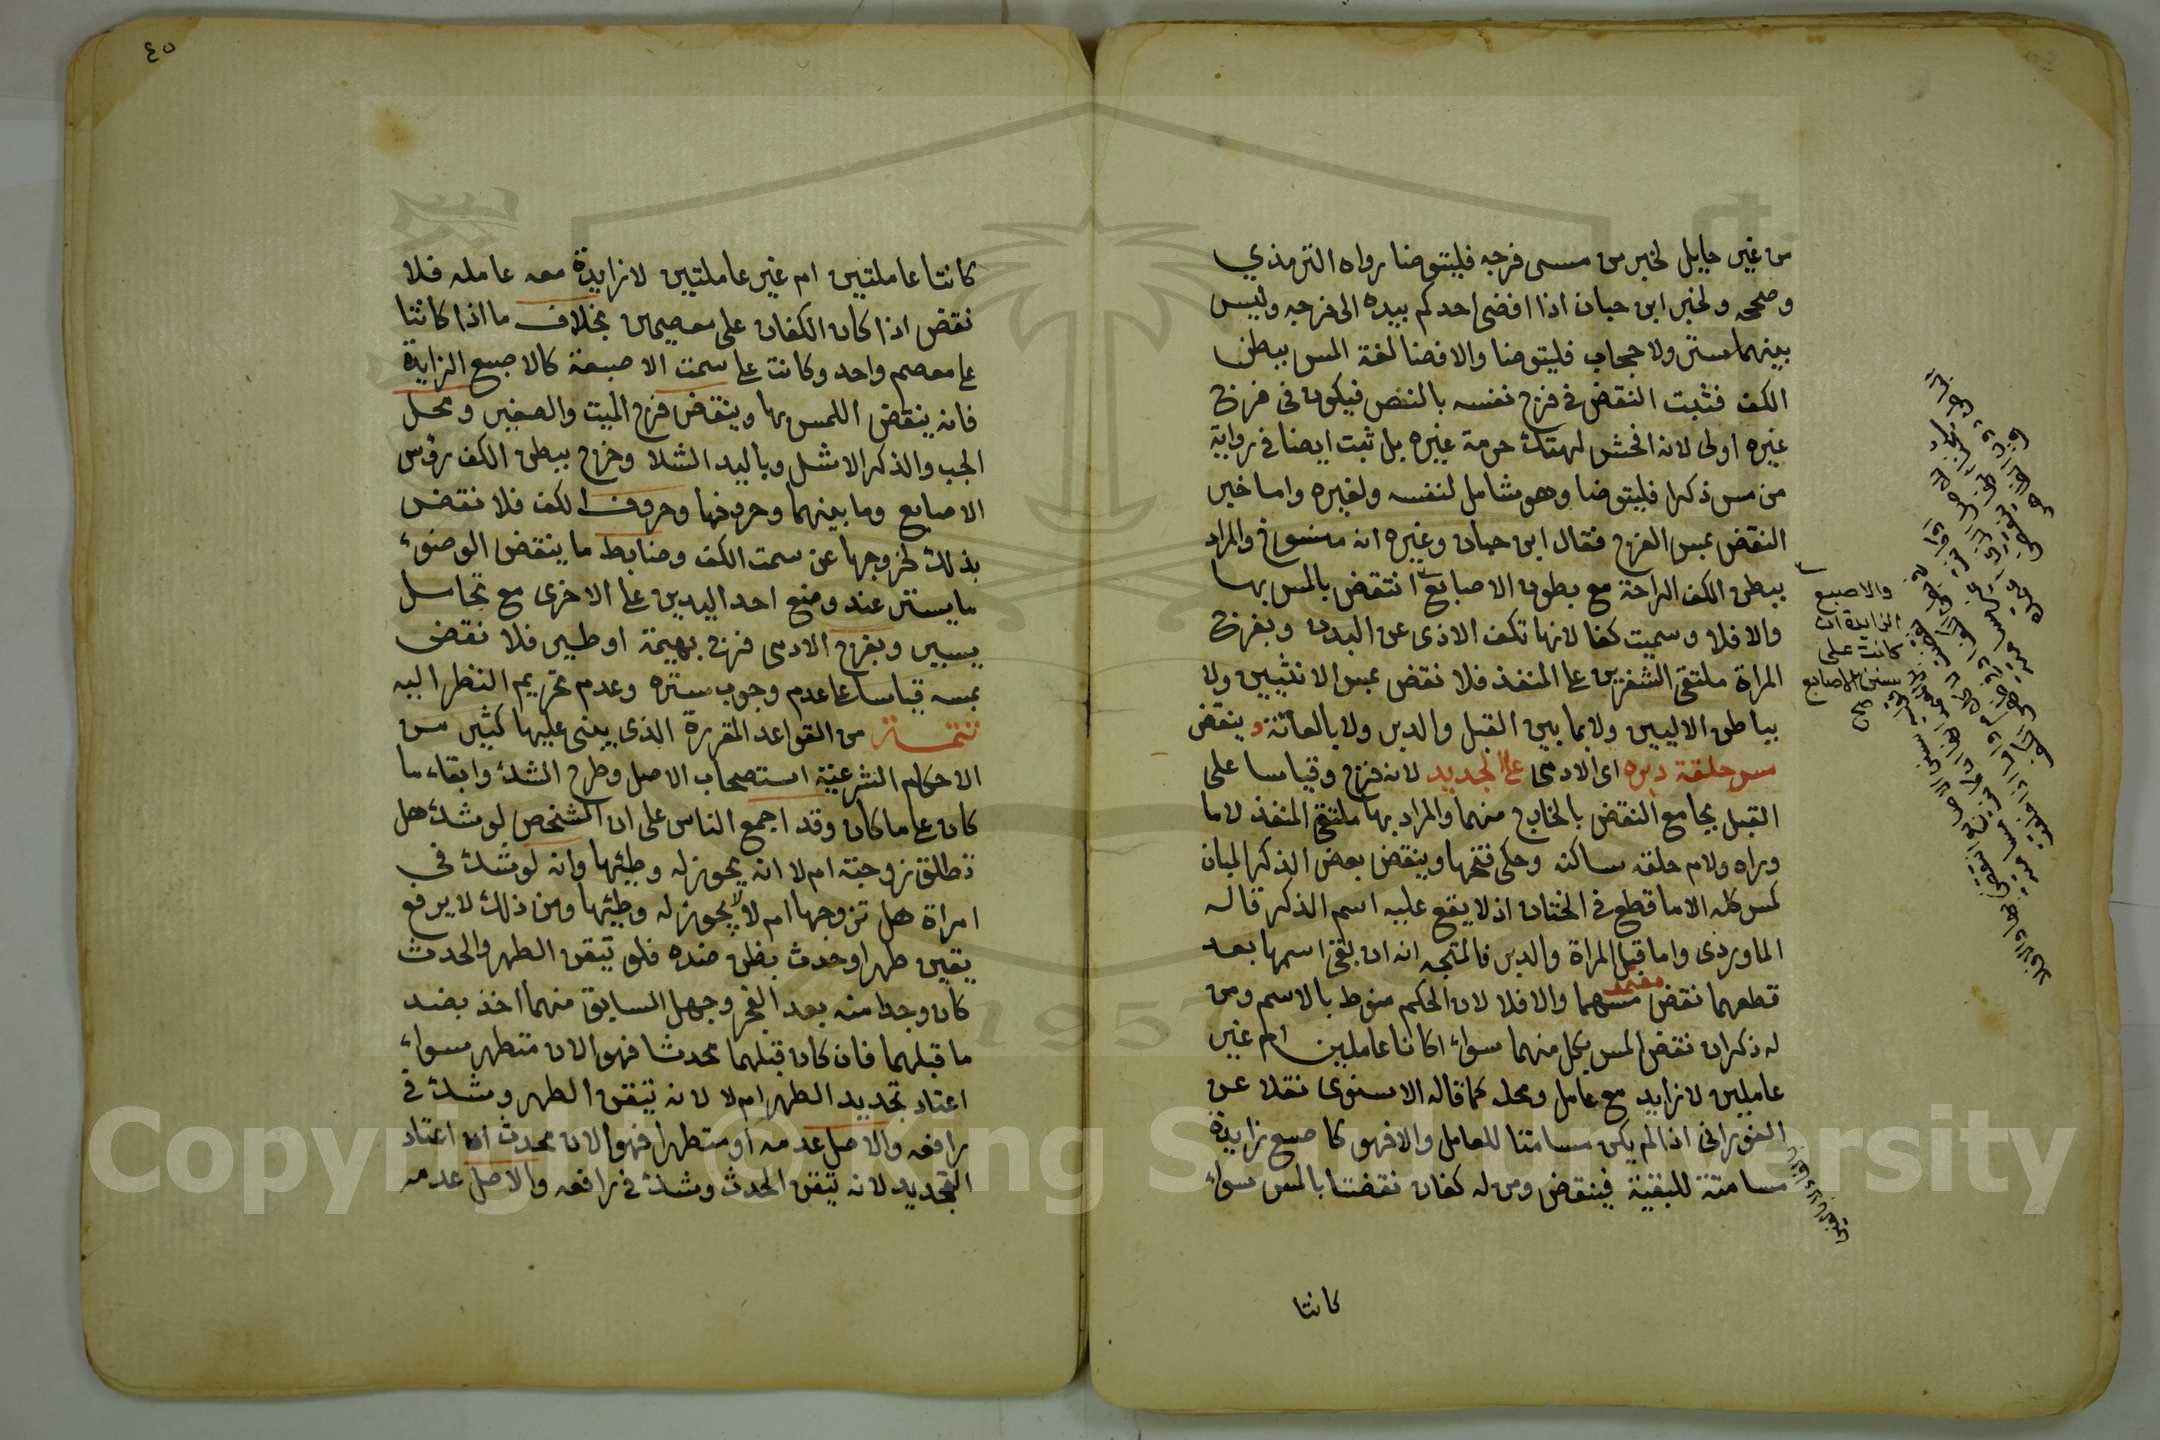 من غير حايل لخبر من مس فرجه فليتوضا رواه الترمذي
وصححه ولخبر ابن حبان اذا افضى احدكم بيده الى فرجه وليس
بينهما ستر ولا حجاب فليتوضا والافضا لغة المس ببطن
الكف فثبت النقض في فرج نفسه بالنص فيكون في فرج
غيره اولى لانه افحش لهتك حرمة غيره بل ثبت ايضا في رواية
من مس ذكرا فليتوضا وهو شامل لنفسه ولغيره واما خبر
النقض بمس الفرج فقال ابن حبان وغيره انه منسوخ والمراد
ببطن الكف الراحة مع بطون الاصابع انتقض بالمس بها
والا فلا وسميت كفا لانها تكف الاذى عن البدن وبفرج
المراة ملتقى الشفرين على المنفذ فلا نقض بمس الانثيين ولا
بباطن الاليين ولا بما بين القبل والدبر ولا بالعانة وينقض
مس حلقة دبره اى الادمى على الجديد لانه فرج وقياسا على
القبل بجامع النقض بالخارج منهما والمراد بها ملتقى المنفذ لا ما
وراه ولام حلقه ساكنه وحكى فتحها وينقض بعض الذكر المبان
كمس كله الا ما قطع في الختان اذ لا يقع عليه اسم الذكر قاله
الماوردى واما قبل المراة والدبر فالمتجه انه ان بقى اسمها بعد
قطعهما نقض مسهما والا فلا لان الحكم منوط بالاسم ومن
له ذكران نقض المس بكل منهما سواء اكانا عاملين ام غير
عاملين لا زايد مع عامل ومحله كما قاله الاسنوى نقلا عن
الفورانى اذا لم يكن مسامتا للعامل والا فهو كاصبع زايدة
مسامتة للبقية فينقض ومن له كفان نقضتا بالمس سواء
كانتا
والاصبع
الزايدة ان
كانت على
سنن الاصابع
صح
٤٥
كانتا عاملتين ام غير عاملتين لا زايدة معه عامله فلا
نقض اذا كان الكفان على معصمين بخلاف ما اذا كانتا
على معصم واحد وكانت على سمت الاصبعة كالاصبع الزايدة
فانه ينقض اللمس بها وينقض فرج الميت والصغير ومحل
الجب والذكر الاشل وباليد الشلا وخرج ببطن الكف رؤس
الاصابع وما بينهما وحروفها وحروف الكف فلا نقض
بذلك لخروجها عن سمت الكف وضابط ما ينقض الوضوء
ما يستتر عند وضع احد اليدين على الاخرى مع تحامل
يسير وبفرج الادمى فرج بهيمة او طير فلا نقض
بمسه قياسا على عدم وجوب ستره وعدم تحريم النظر اليه
تتمة من القواعد المقررة الذى يبنى عليها كثير من
الاحكام الشرعية استصحاب الاصل وطرح الشك وابقاء ما
كان على ما كان وقد اجمع الناس على ان الشخص لو شك هل
طلق زوجته ام لا انه يجوز له وطئها وانه لو شك في
امراة هل تزوجها ام لا لا يجوز له وطئها ومن ذلك لا يرفع
يقين طهر او حدث بظن ضده فلو تيقن الطهر والحدث
كان وجدا منه بعد الفجر وجهل السابق منهما اخذ بضد
ما قبلهما فان كان قبلهما محدثا فهو الان متطهر سواء
اعتاد تجديد الطهر ام لا لانه تيقن الطهر وشك في
رافعه والاصل عدمه او متطهرا فهو الان محدث ان اعتاد
التجديد لانه تيقن الحدث وشك في رافعه والاصل عدمه
Copyright © King Saud University
1957